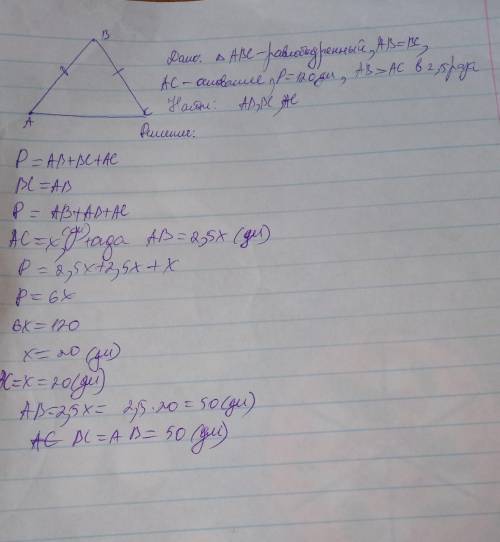 B
A
C
Дано: △ ABC - равнобедренный, AB = BC,
AC - основание, P = 120 дм, AB > AC в 2,5 раза
Найти: AB, BC, AC
Решение:
P = AB + BC + AC
BC = AB
P = AB + AB + AC
AC = x (дм), тогда AB = 2,5x (дм)
P = 2,5x + 2,5x + x
P = 6x
6x = 120
x = 20 (дм)
AC = x = 20 (дм)
AB = 2,5x = 2,5 · 20 = 50 (дм)
BC = AB = 50 (дм)